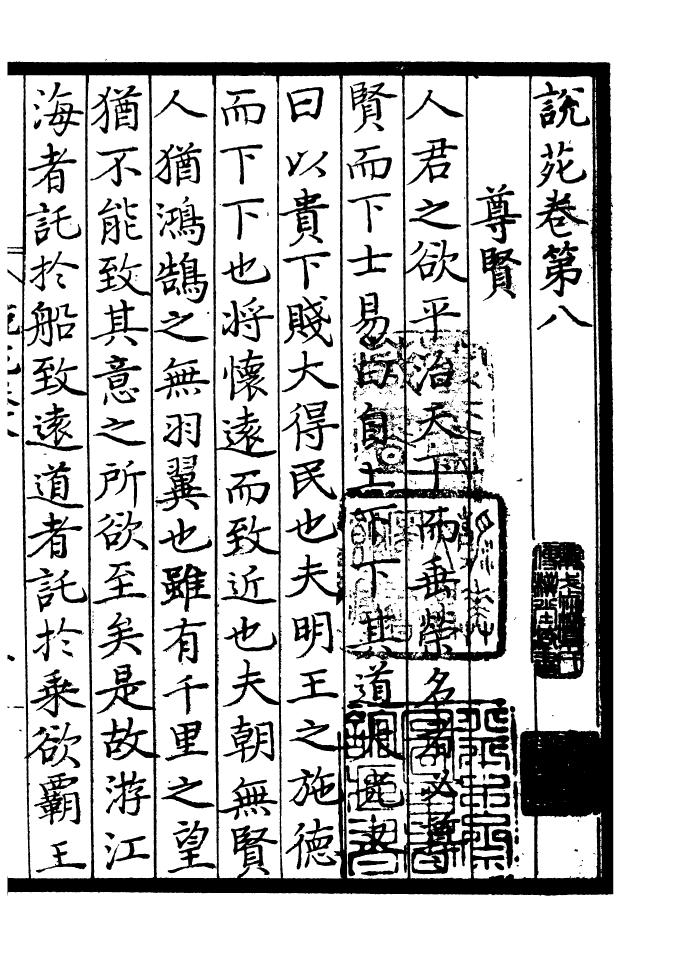 說苑卷第八
尊賢
人君之欲平治天下而垂榮名者必尊
賢而下士易曰自上下下其道大光又
曰以貴下賤大得民也夫明王之施德
而下下也將懷遠而致近也夫朝無賢
人猶鴻鵠之無羽翼也雖有千里之望
猶不能致其意之所欲至矣是故游江
海者託於船致遠道者託於乗欲覇王